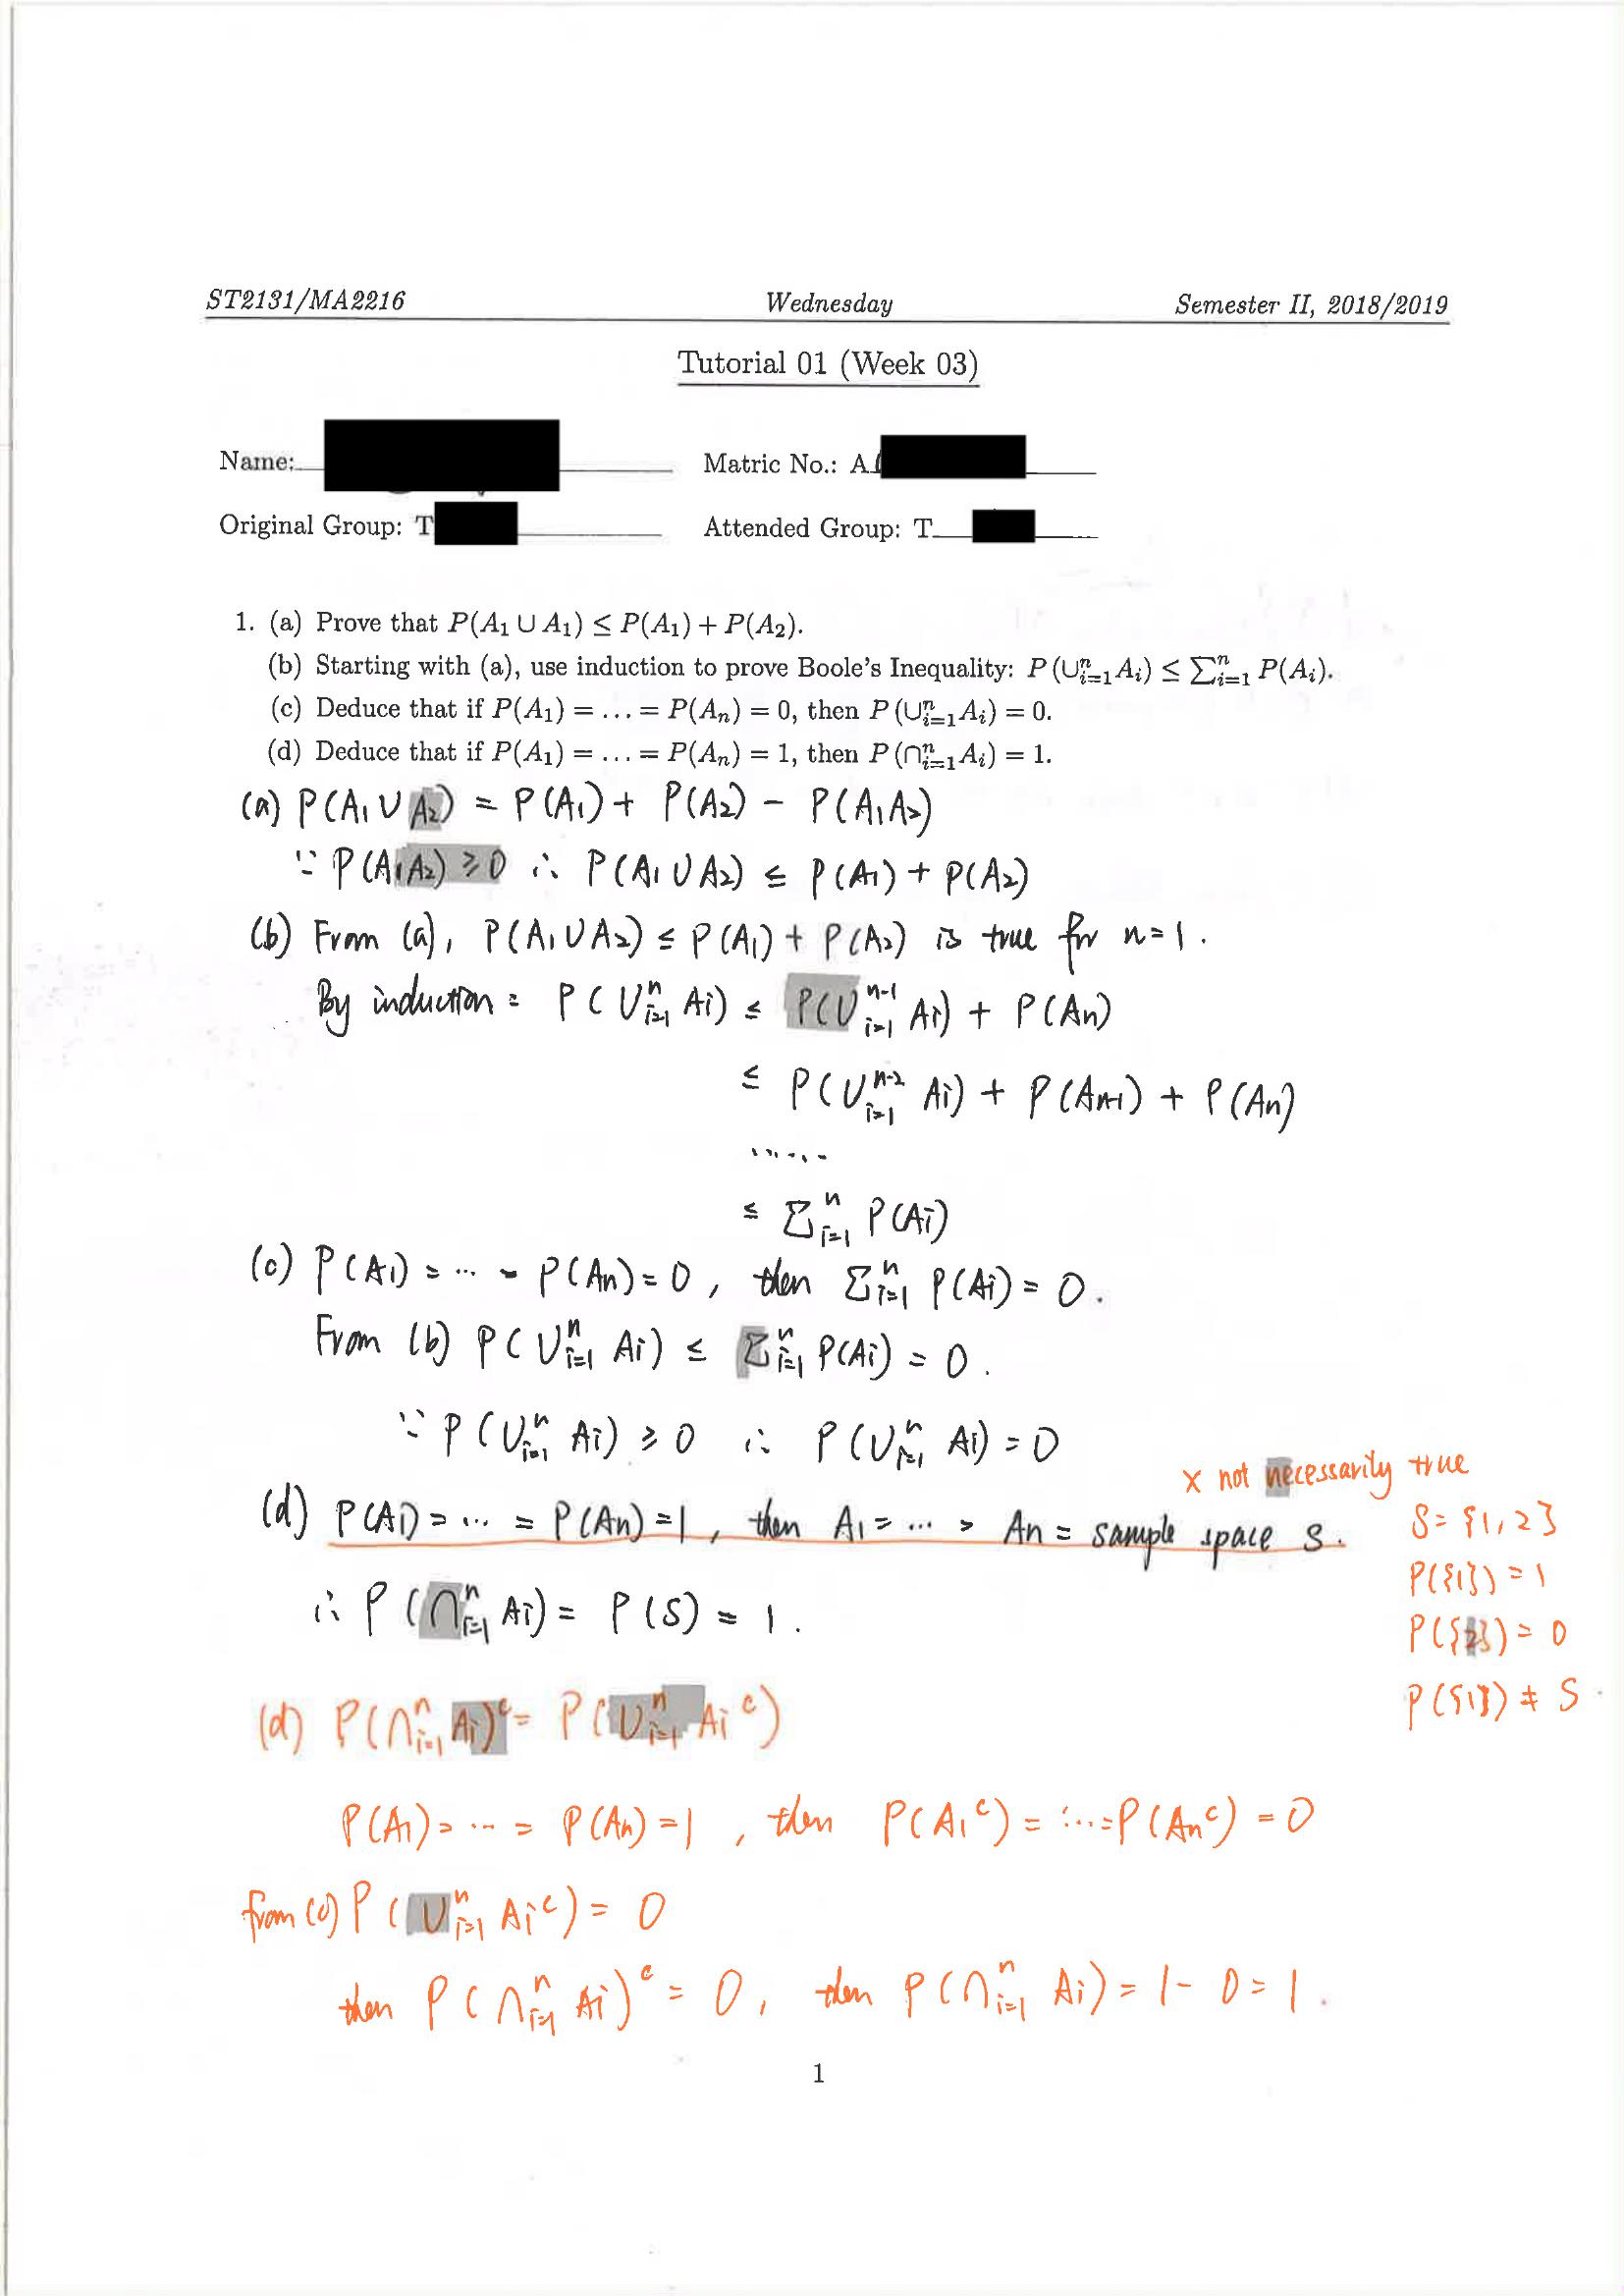 ST2131/MA2216 Wednesday Semester II, 2018/2019
Tutorial 01 (Week 03)
Name: Matric No.: A
Original Group: T Attended Group: T
1. (a) Prove that P(A₁ ∪ A₁) ≤ P(A₁) + P(A₂).
(b) Starting with (a), use induction to prove Boole's Inequality: P(∪ⁿᵢ₌₁Aᵢ) ≤ ∑ⁿᵢ₌₁ P(Aᵢ).
(c) Deduce that if P(A₁) = ... = P(Aₙ) = 0, then P(∪ⁿᵢ₌₁Aᵢ) = 0.
(d) Deduce that if P(A₁) = ... = P(Aₙ) = 1, then P(∩ⁿᵢ₌₁Aᵢ) = 1.
(a) P(A₁ ∪ A₂) = P(A₁) + P(A₂) - P(A₁A₂)
∵ P(A₁A₂) ≥ 0 ∴ P(A₁ ∪ A₂) ≤ P(A₁) + P(A₂)
(b) From (a), P(A₁ ∪ A₂) ≤ P(A₁) + P(A₂) is true for n=1.
By induction: P(∪ⁿᵢ₌₁ Aᵢ) ≤ P(∪ⁿ⁻¹ᵢ₌₁ Aᵢ) + P(Aₙ)
≤ P(∪ⁿ⁻²ᵢ₌₁ Aᵢ) + P(Aₙ₋₁) + P(Aₙ)
......
≤ ∑ⁿᵢ₌₁ P(Aᵢ)
(c) P(A₁) = ... = P(Aₙ) = 0, then ∑ⁿᵢ₌₁ P(Aᵢ) = 0.
From (b) P(∪ⁿᵢ₌₁ Aᵢ) ≤ ∑ⁿᵢ₌₁ P(Aᵢ) = 0.
∵ P(∪ⁿᵢ₌₁ Aᵢ) ≥ 0 ∴ P(∪ⁿᵢ₌₁ Aᵢ) = 0
x not necessarily true
(d) P(A₁) = ... = P(Aₙ) = 1, then A₁ = ... = Aₙ = sample space S.
S = {1, 2}
P({1}) = 1
∴ P(∩ⁿᵢ₌₁ Aᵢ) = P(S) = 1.
P({2}) = 0
P({1}) ≠ S.
(d) P(∩ⁿᵢ₌₁ Aᵢ)ᶜ = P(∪ⁿᵢ₌₁ Aᵢᶜ)
P(A₁) = ... = P(Aₙ) = 1, then P(A₁ᶜ) = ... = P(Aₙᶜ) = 0
from (c) P(∪ⁿᵢ₌₁ Aᵢᶜ) = 0
then P(∩ⁿᵢ₌₁ Aᵢ)ᶜ = 0, then P(∩ⁿᵢ₌₁ Aᵢ) = 1 - 0 = 1.
1